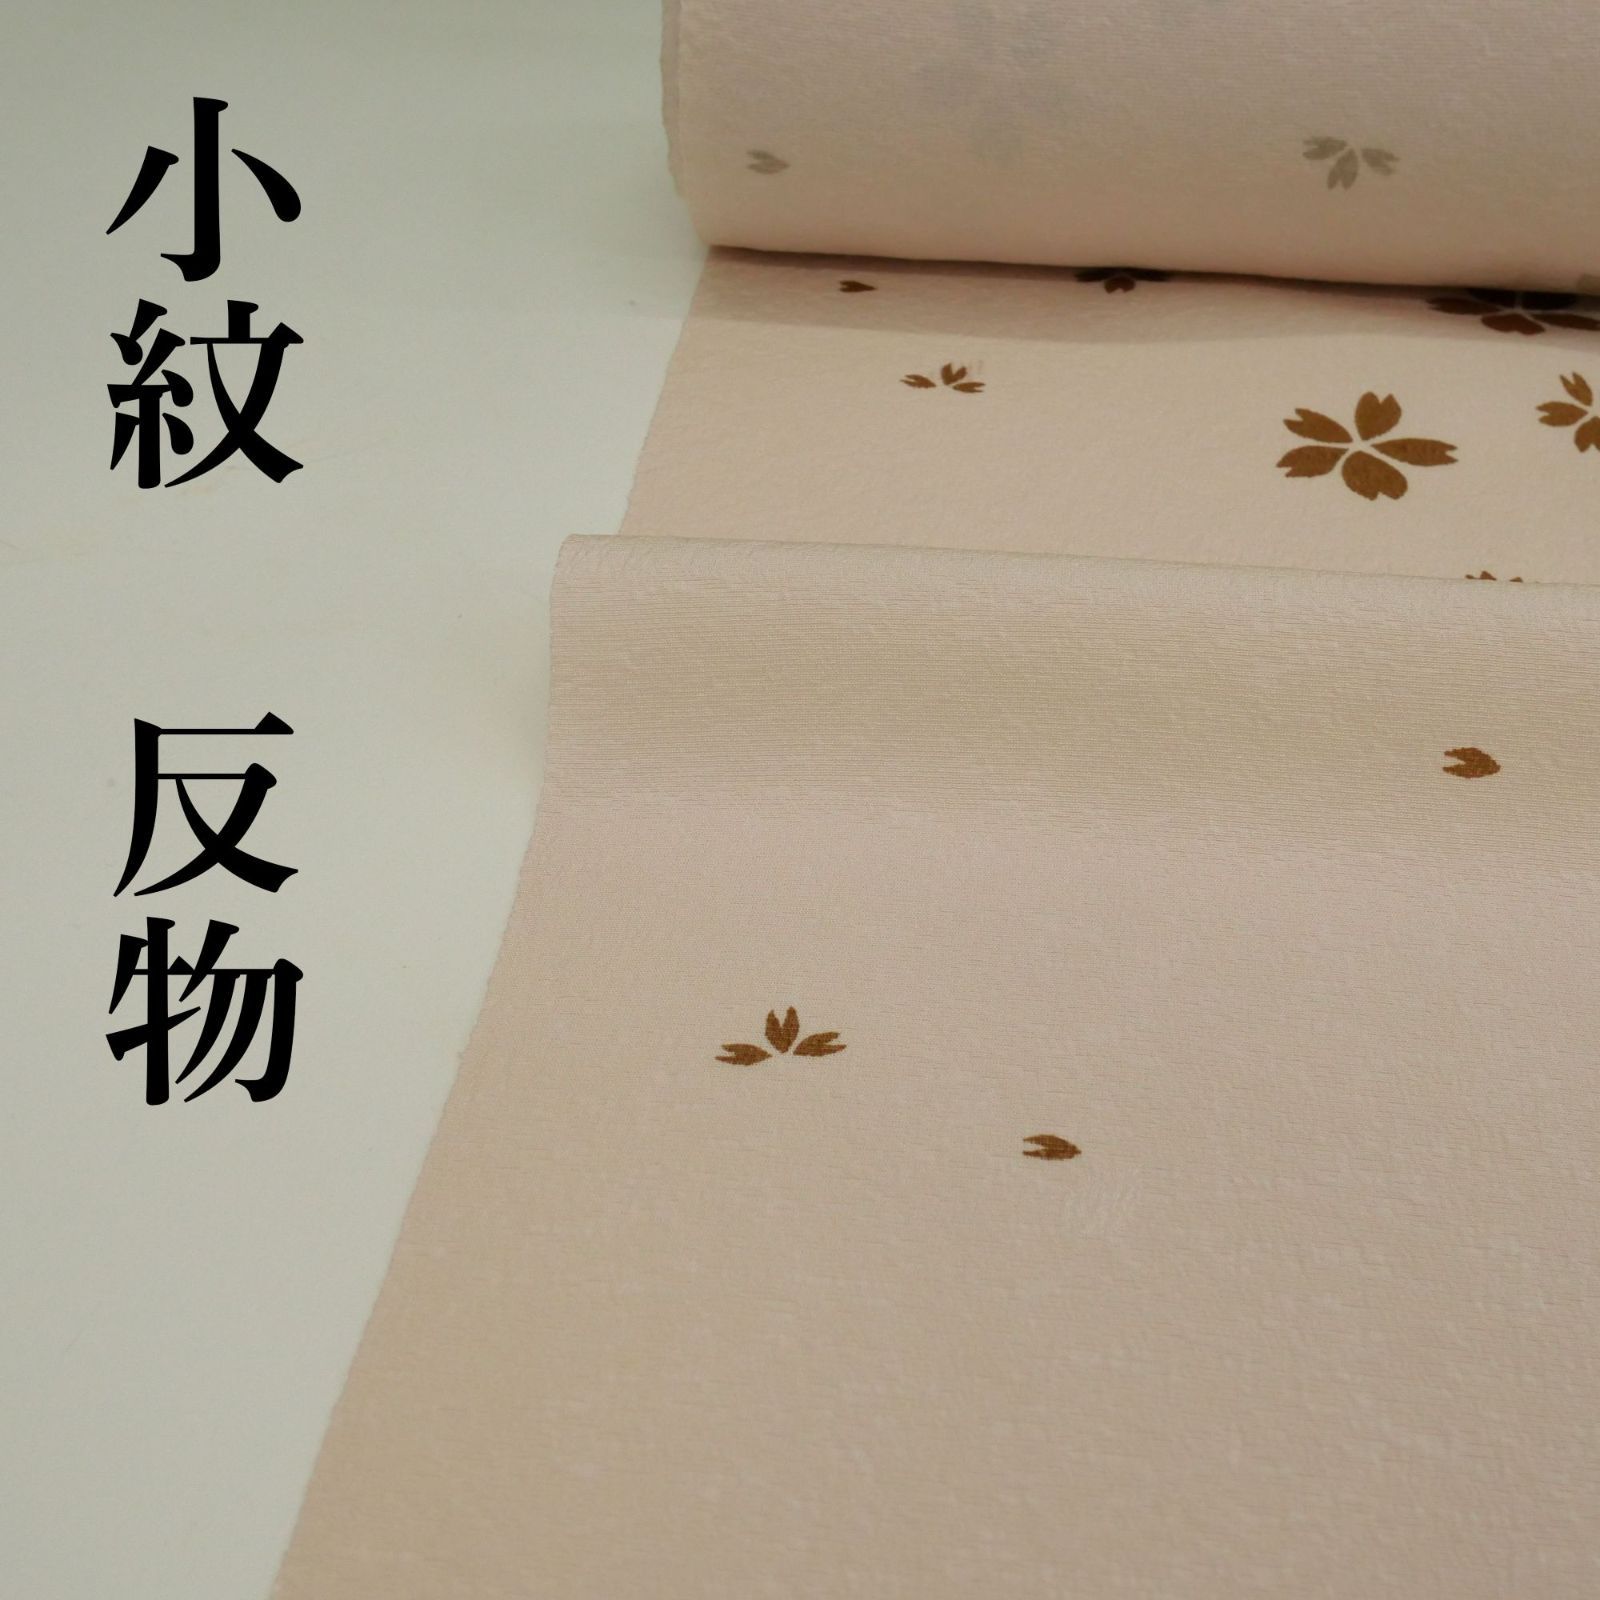 小紋 反物